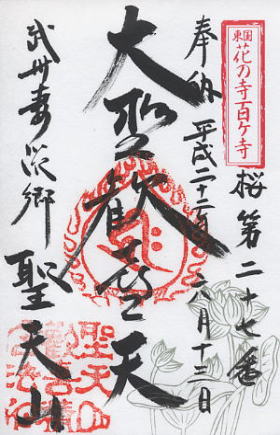 東国
花の寺百ケ寺
桜第二十七番
奉納 平成二十二年六月十三日
大聖歓喜天
武州妻沼郷
聖天山
聖天山